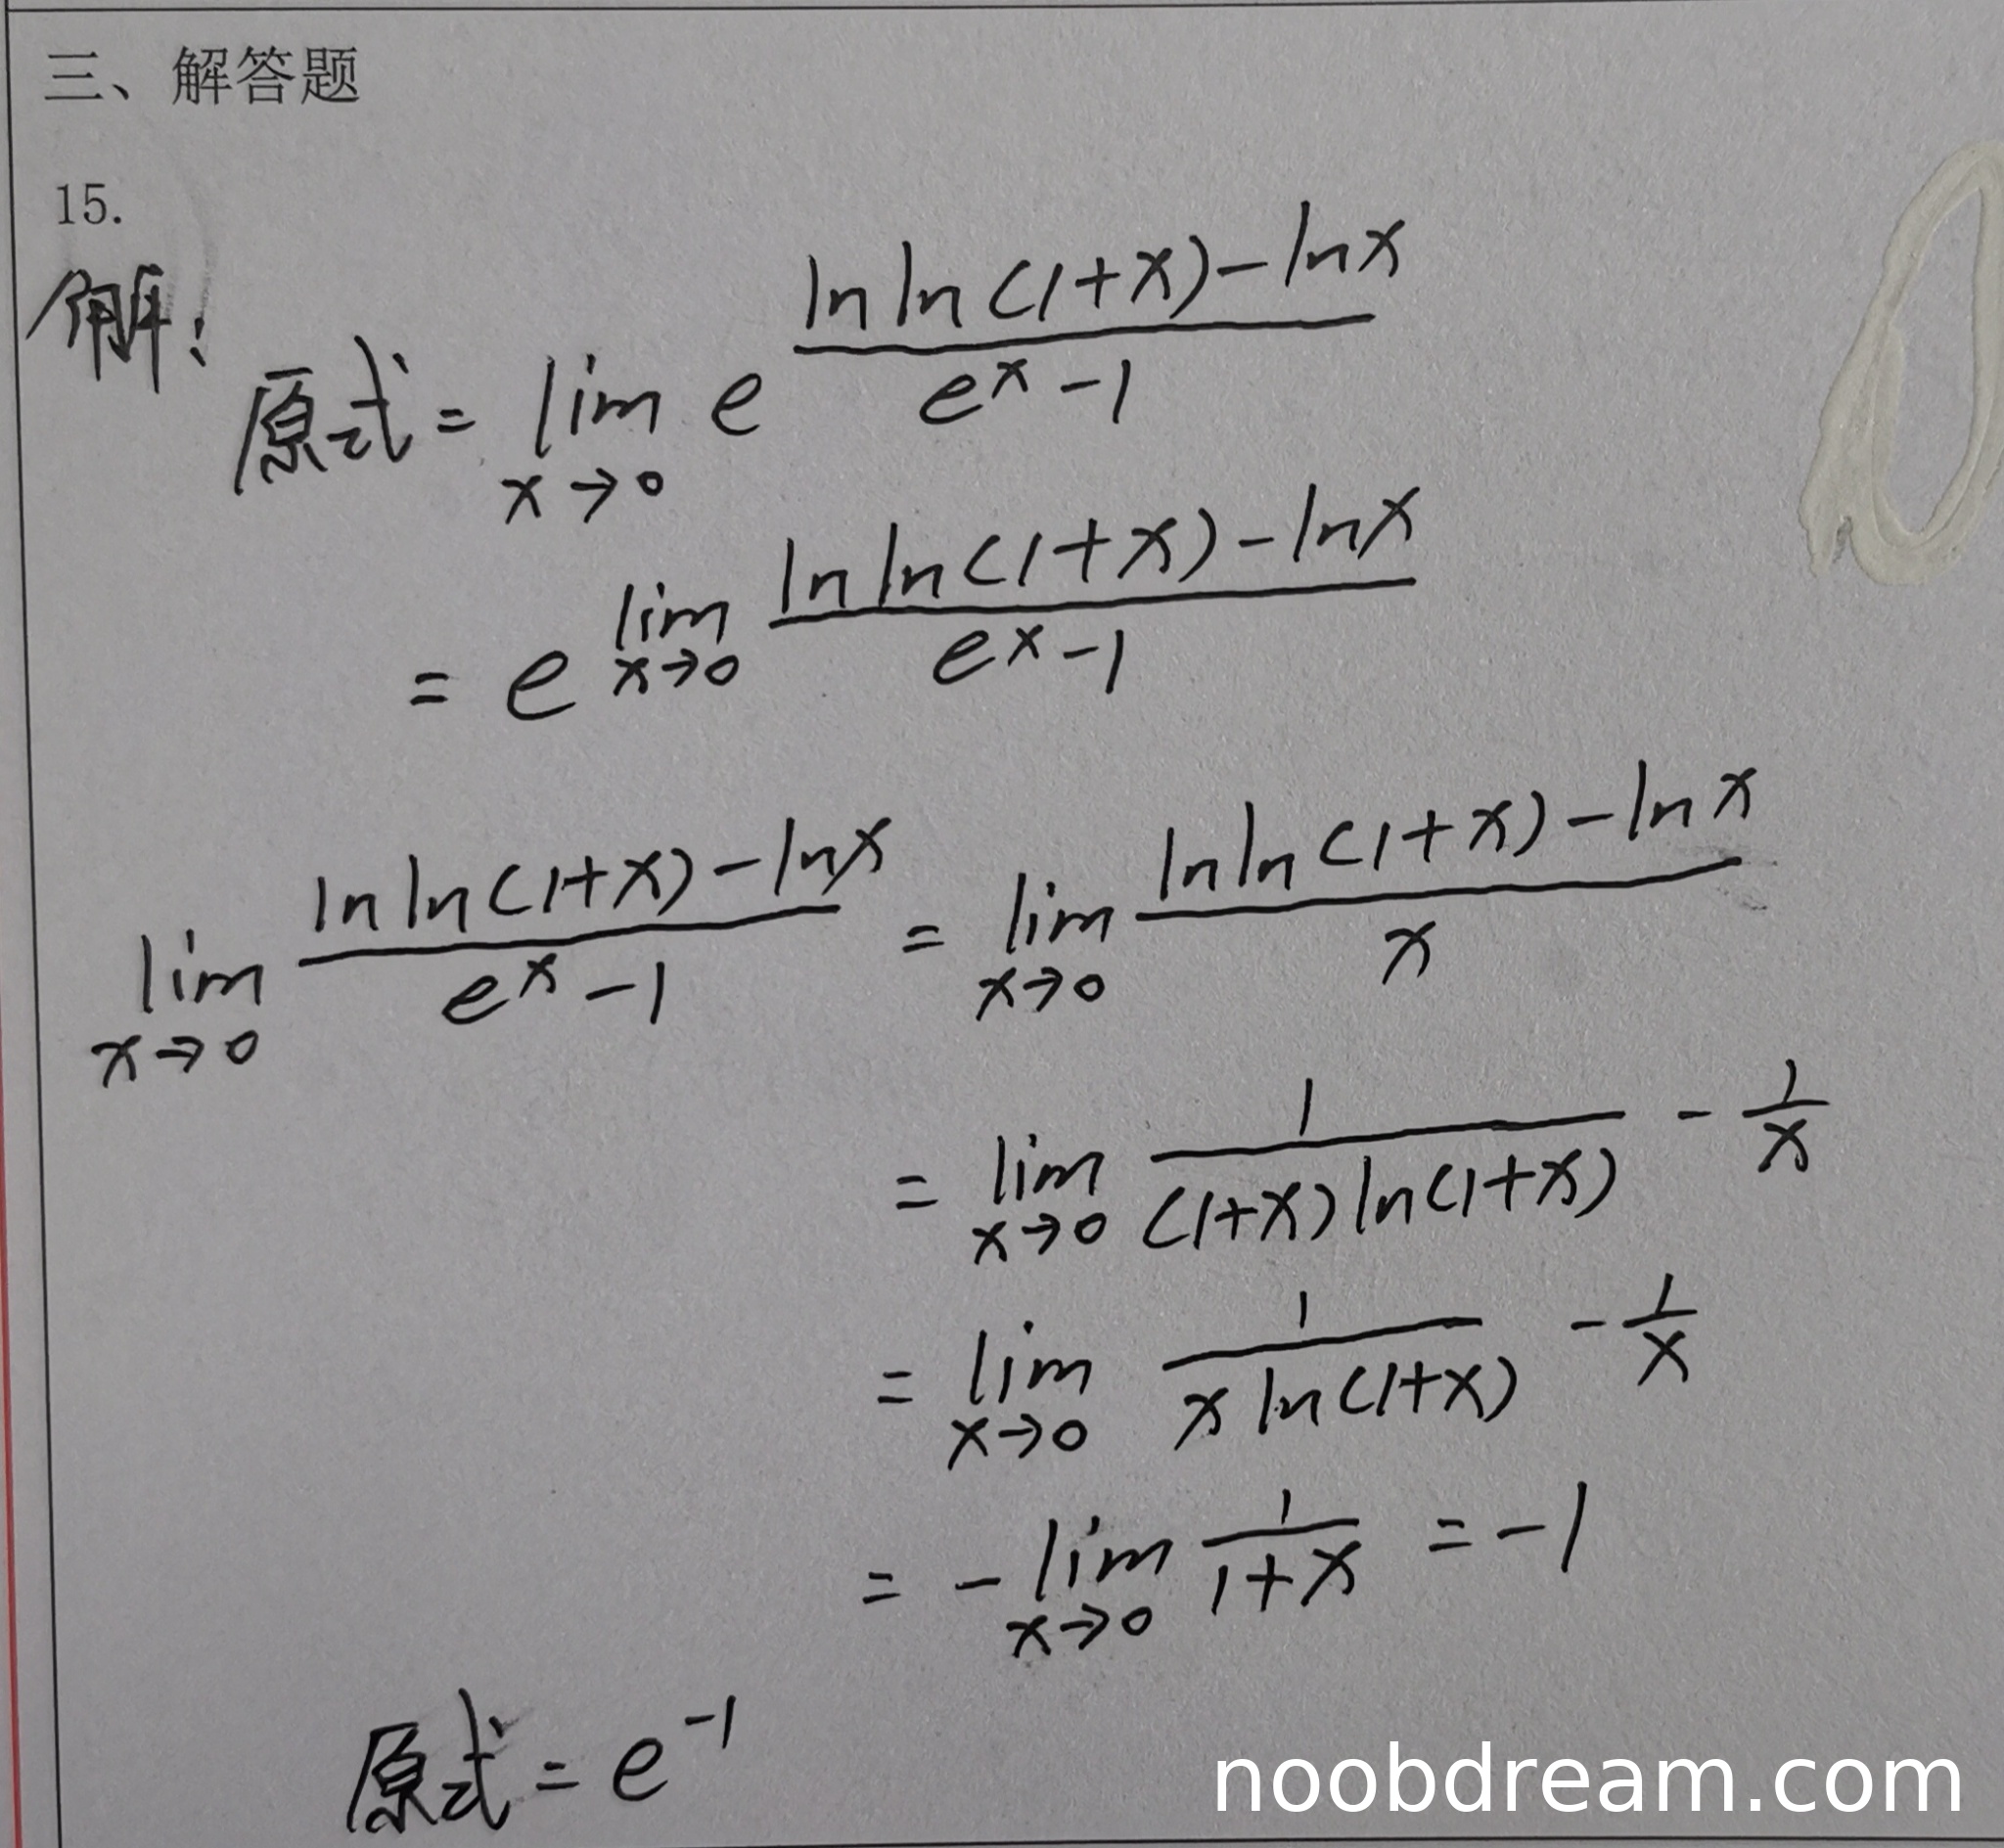 三、解答题
15.
解:
原式 = lim_{x→0} e^{\frac{ln ln(1+x) - ln x}{e^x - 1}}
= e^{lim_{x→0} \frac{ln ln(1+x) - ln x}{e^x - 1}}
lim_{x→0} \frac{ln ln(1+x) - ln x}{e^x - 1} = lim_{x→0} \frac{ln ln(1+x) - ln x}{x}
= lim_{x→0} \frac{1}{(1+x) ln(1+x)} - \frac{1}{x}
= lim_{x→0} \frac{1}{x ln(1+x)} - \frac{1}{x}
= - lim_{x→0} \frac{1}{1+x} = -1
原式 = e^{-1}
noobdream.com